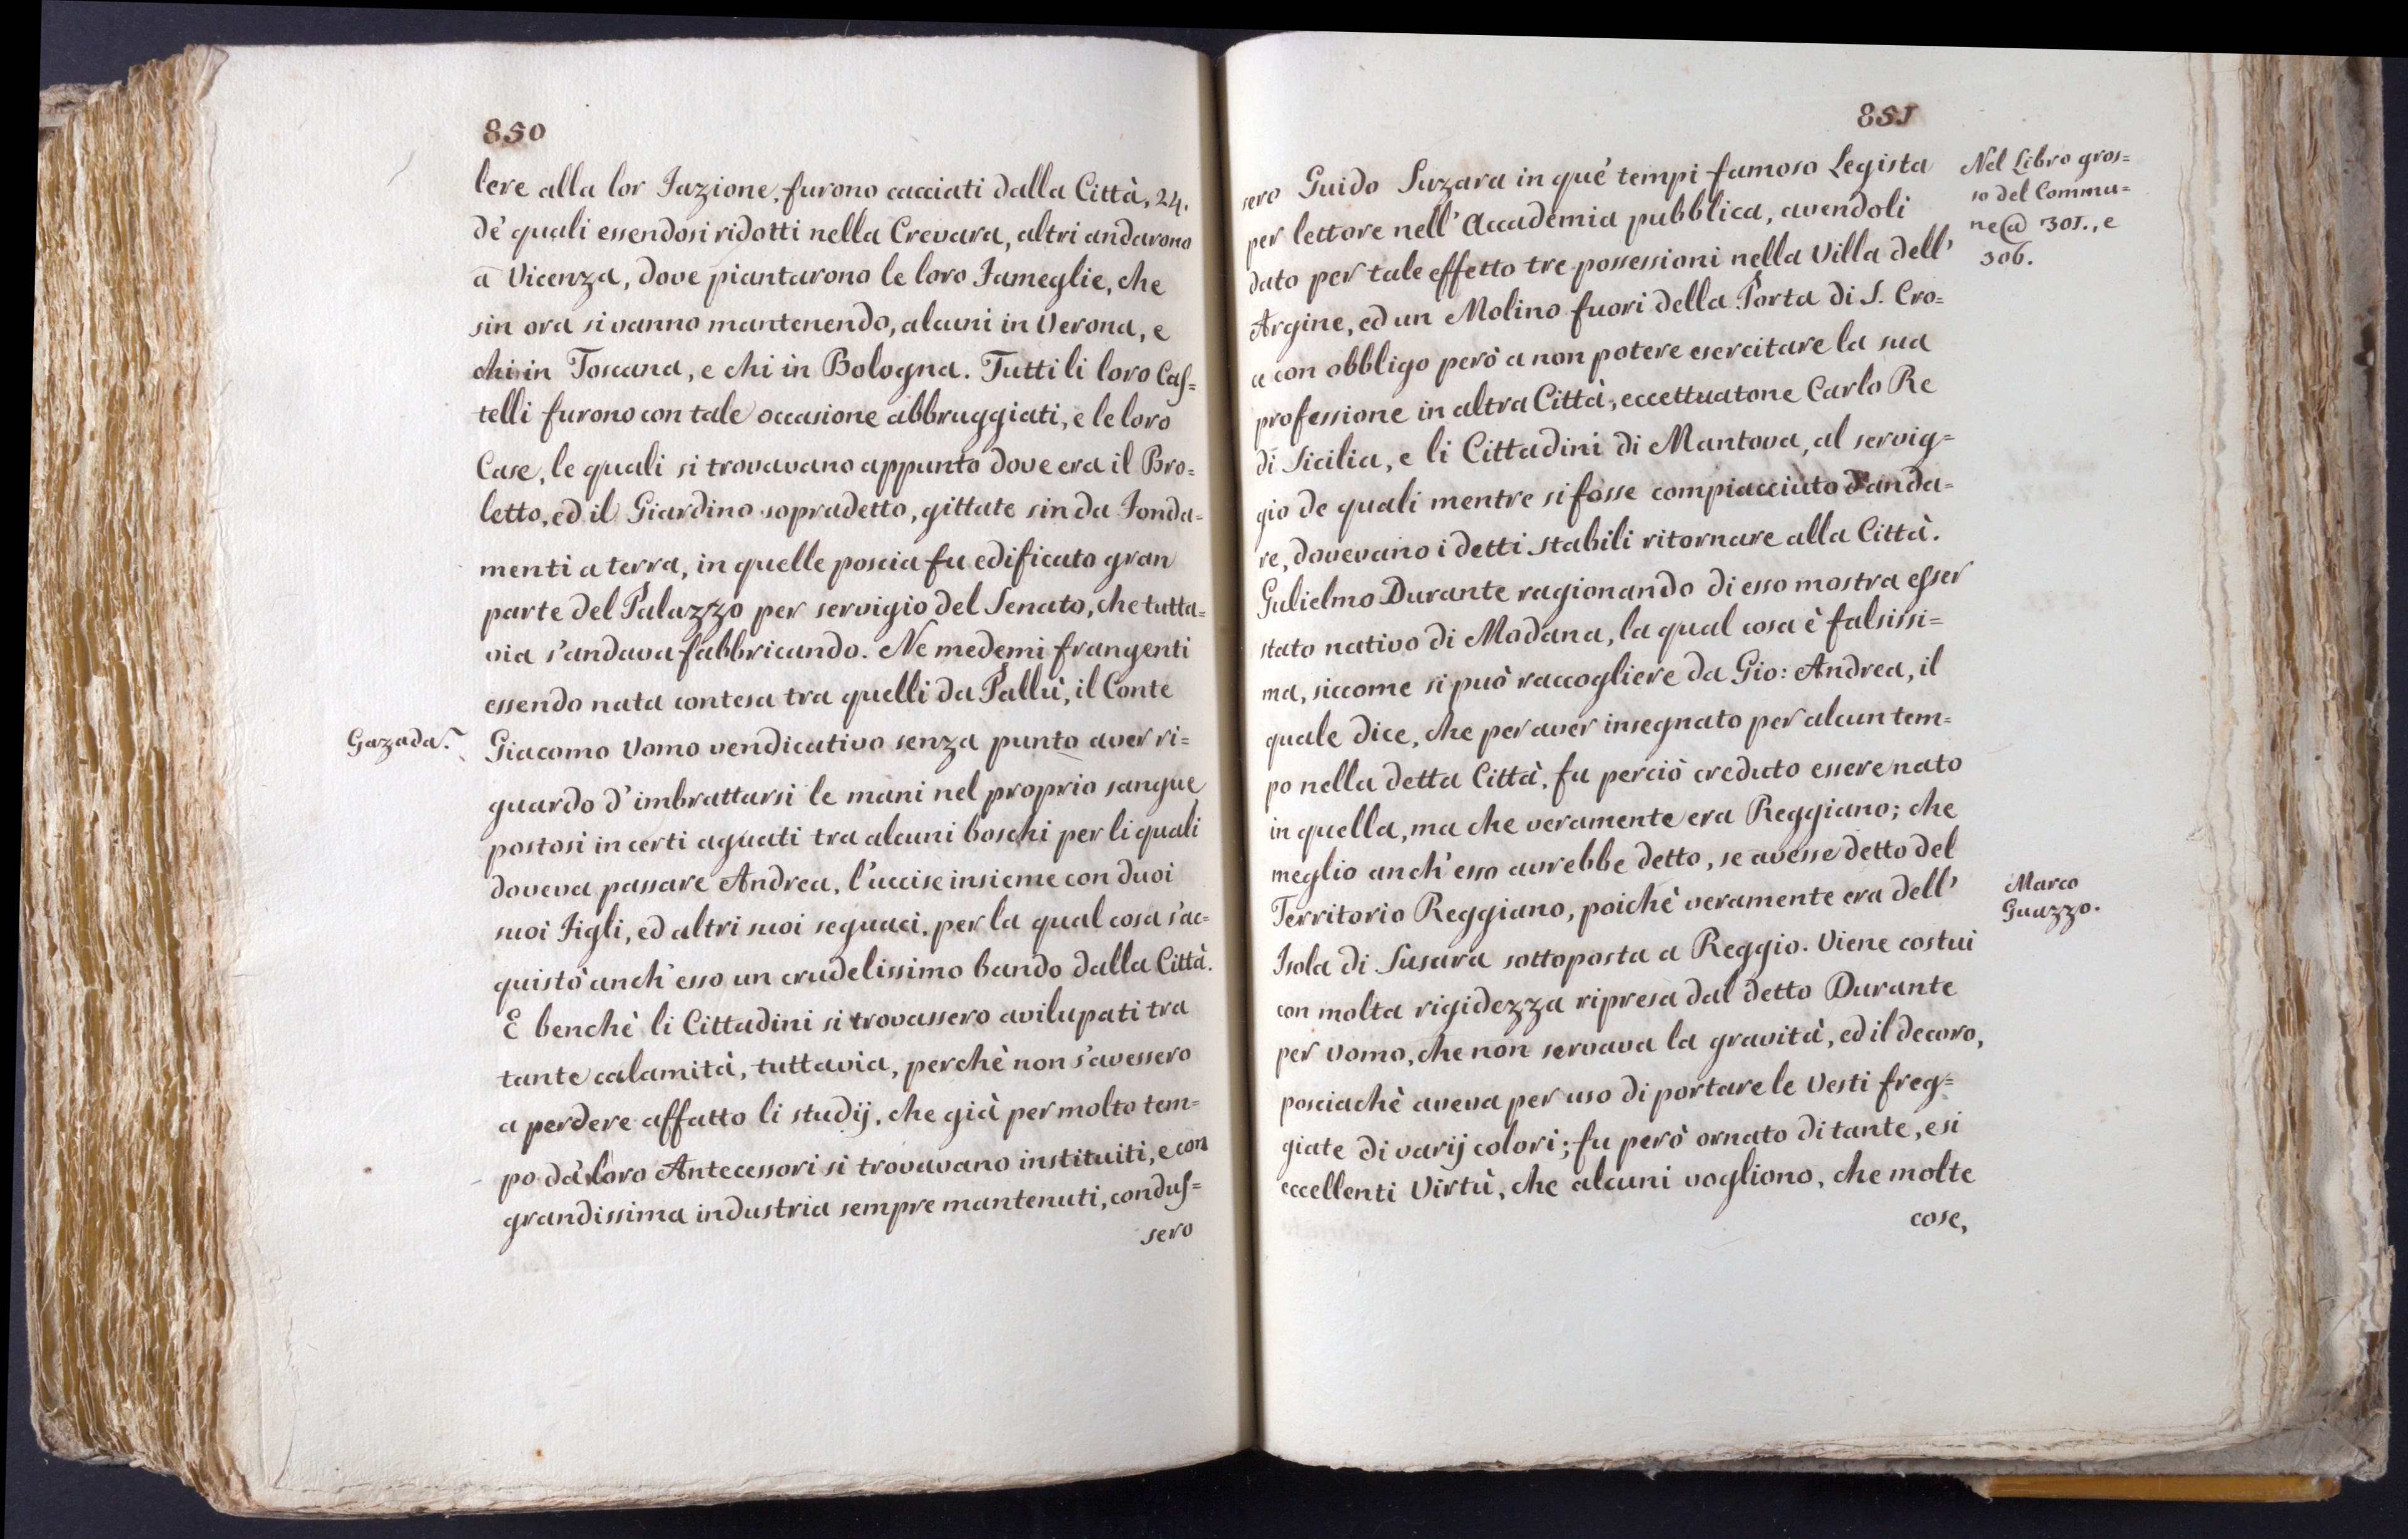 850
lere alla lor Fazione, furono cacciati dalla Città, 24.
dè quali essendosi ridotti nella Crevara, altri andarono
a Vicenza, dove piantarono le loro Fameglie, che
sin ora si vanno mantenendo, alcuni in Verona, e
chi in Toscana, e chi in Bologna. Tutti li loro Cas=
telli furono con tale occasione abbruggiati, e le loro
Case, le quali si trovavano appunto dove era il Bro=
letto, ed il Giardino sopradetto, gittate sin da Fonda=
menti a terra, in quelle poscia fu edificato gran
parte del Palazzo per servigio del Senato, che tutta=
via s'andava fabbricando. Ne medemi frangenti
essendo nata contesa tra quelli da Pallù, il Conte
Gazada.
Giacomo Vomo vendicativo senza punto aver ri=
guardo d'imbrattarsi le mani nel proprio sangue
postosi in certi aguati tra alcuni boschi per li quali
doveva passare Andrea, l'uccise insieme con duoi
suoi Figli, ed altri suoi seguaci, per la qual cosa s'ac=
quistò anch'esso un crudelissimo bando dalla Città.
E benchè li Cittadini si trovassero avilupati tra
tante calamità, tuttavia, perchè non s'avessero
a perdere affatto li studij, che già per molto tem=
po dà loro Antecessori si trovavano instituiti, e con
grandissima industria sempre mantenuti, condus=
sero
851
sero Guido Suzara in què tempi famoso Legista
per lettore nell'Accademia pubblica, avendoli
dato per tale effetto tre possessioni nella Villa dell'
Argine, ed un Molino fuori della Porta di S. Cro=
a con obbligo però a non potere esercitare la sua
professione in altra Città, eccettuatone Carlo Re
di Sicilia, e li Cittadini di Mantova, al servig=
gio de quali mentre si fosse compiacciuto d'anda=
re, dovevano i detti stabili ritornare alla Città.
Gulielmo Durante ragionando di esso mostra esser
stato nativo di Modana, la qual cosa è falsissi=
ma, siccome si può raccogliere da Gio: Andrea, il
quale dice, che per aver insegnato per alcun tem=
po nella detta Città, fu perciò creduto essere nato
in quella, ma che veramente era Reggiano; che
meglio anch'esso avrebbe detto, se avesse detto del
Territorio Reggiano, poichè veramente era dell'
Isola di Susara sottoposta a Reggio. Viene costui
con molta rigidezza ripresa dal detto Durante
per Vomo, che non servava la gravità, ed il decoro,
posciachè aveva per uso di portare le Vesti freg=
giate di varij colori; fu però ornato di tante, e si
eccellenti Virtù, che alcuni vogliono, che molte
cose,
Nel Libro gros=
so del Commu=
ne @ 305., e
306.
Marco
Guazzo.